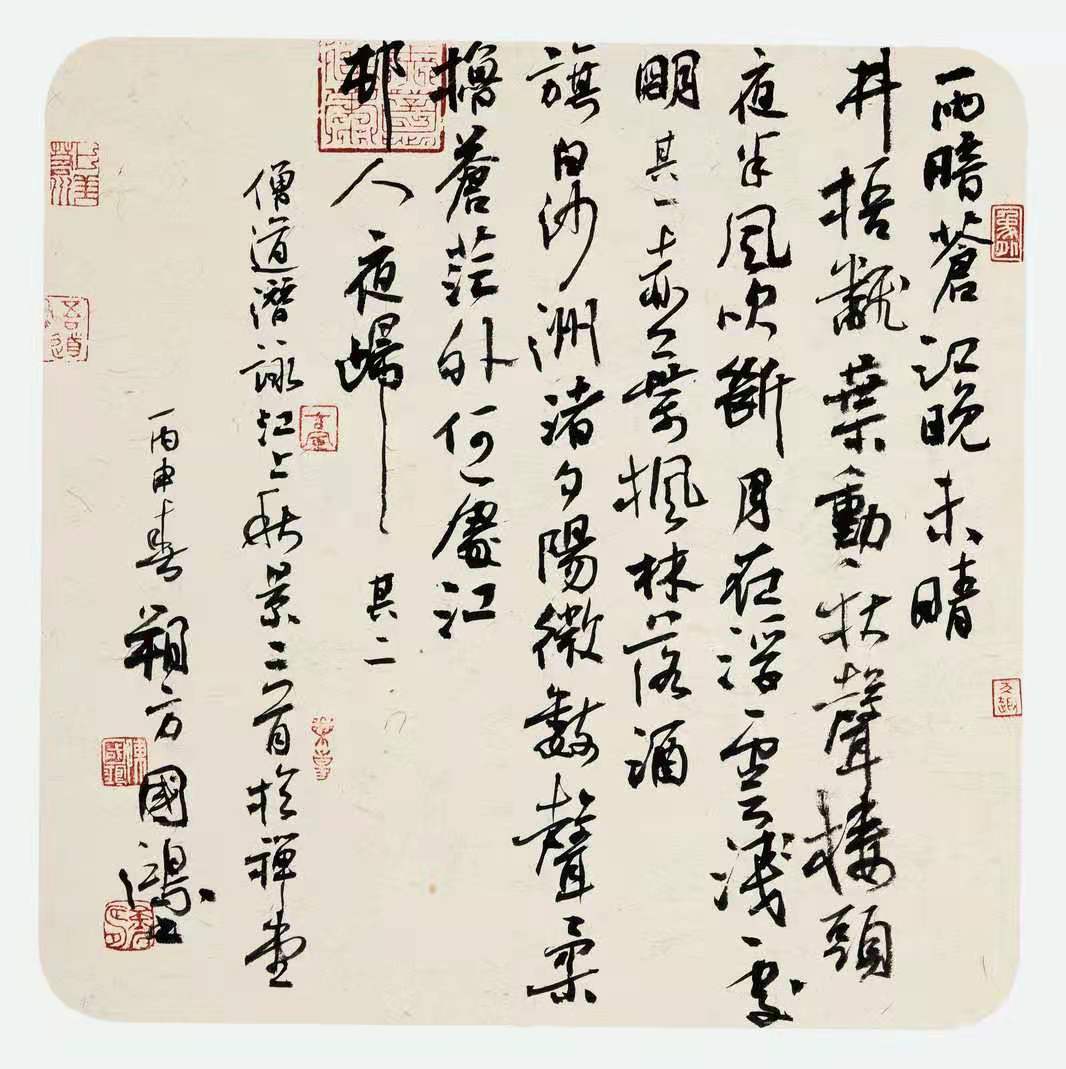 雨暗蒼江晚未晴
井梧翻葉動秋聲楼頭
夜半風吹斷月在浮雲淺處
明其一赤葉楓林落酒
旗白沙洲渚夕陽微數聲柔
櫓蒼茫外何處江
邨人夜歸其二
僧道潛詠江上秋景二首於禅堂
丙申春朔方國鴻書
吾道